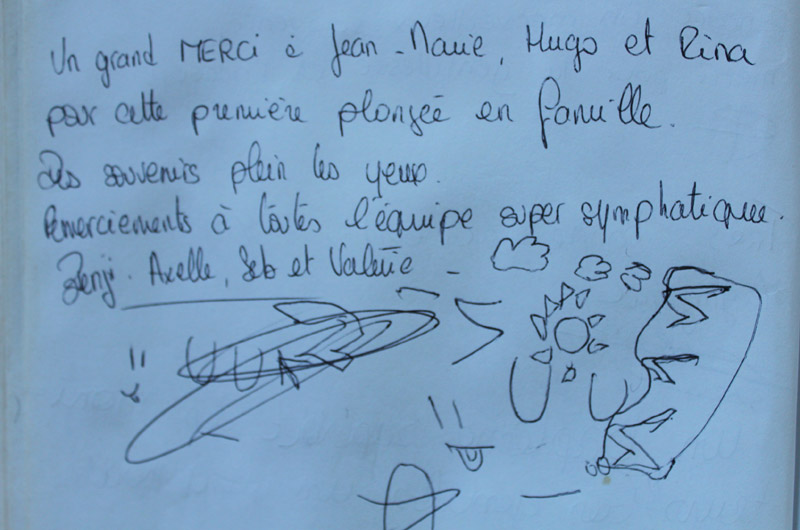 Un grand MERCi à Jean-Marie, Hugo et Rina
pour cette première plongée en famille.
Des souvenirs plein les yeux.
Remerciements à toutes l'équipe super symphatique.
Benji. Axelle, Seb et Valérie